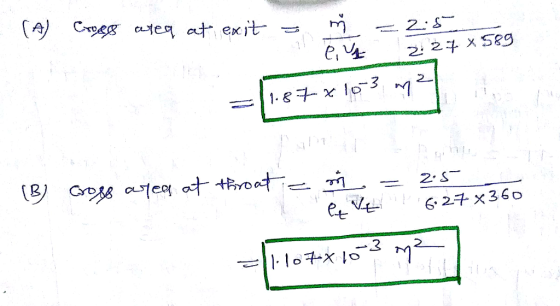 (A) Cross area at exit = ṁ / ρ₁ V₁ = 2.5 / 2.27 × 589
= 1.87 × 10⁻³ m²
(B) Cross area at throat = ṁ / ρt Vt = 2.5 / 6.27 × 360
= 1.107 × 10⁻³ m²